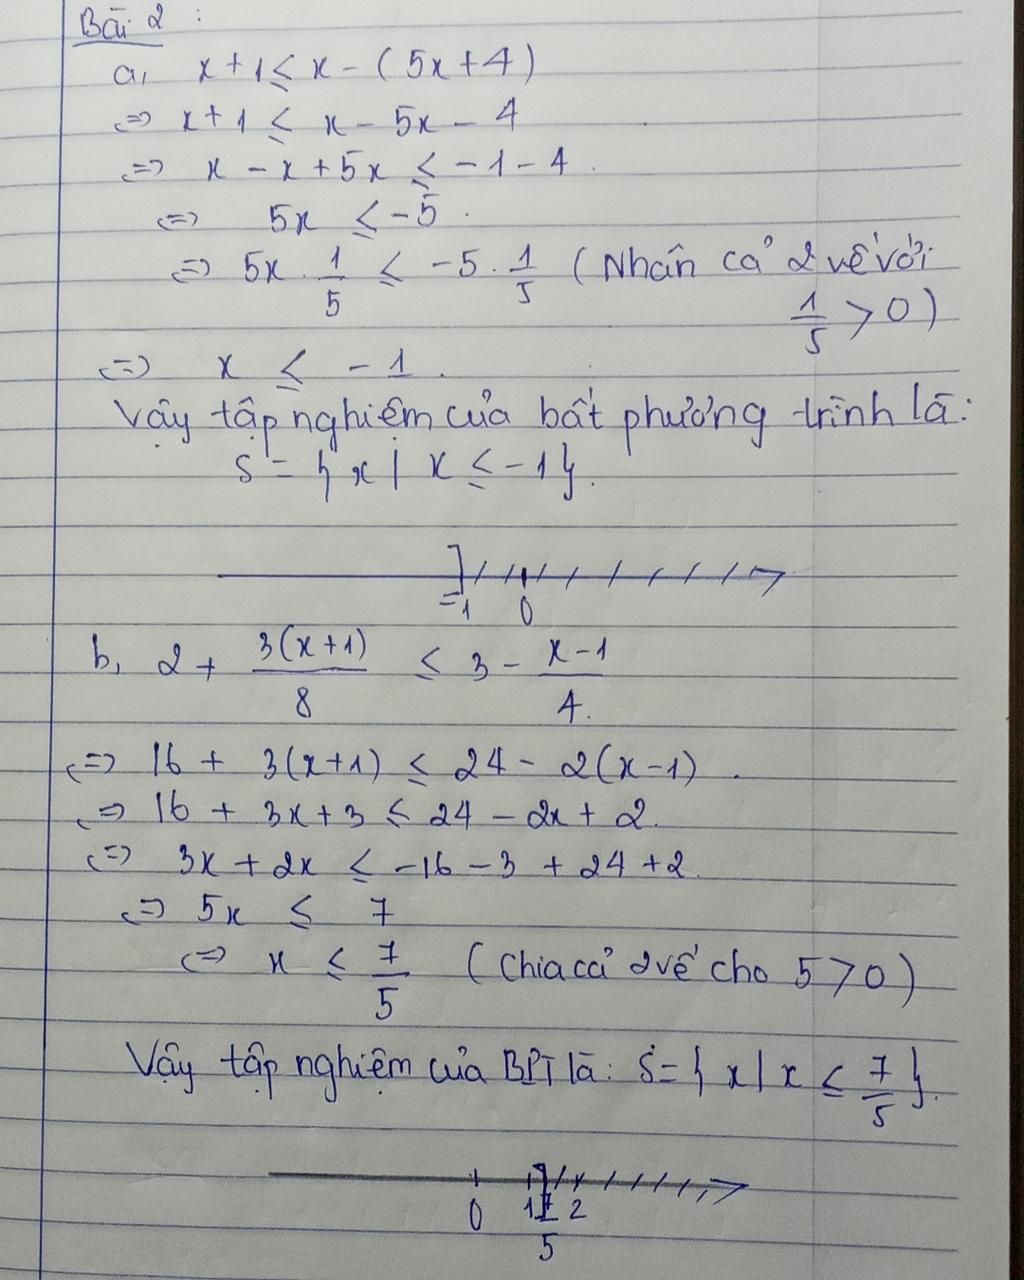 Bài 2 :
a, x + 1 ≤ x - ( 5x + 4 )
<=> x + 1 ≤ x - 5x - 4
<=> x - x + 5x ≤ -1 - 4 .
<=> 5x ≤ -5 .
<=> 5x . 1/5 ≤ -5 . 1/5 ( Nhân cả 2 vế với
1/5 > 0 )
<=> x ≤ -1 .
Vậy tập nghiệm của bất phương trình là:
S = { x | x ≤ -1 }.
-1 0
b, 2 + 3(x+1)/8 ≤ 3 - x-1/4.
<=> 16 + 3(x+1) ≤ 24 - 2(x-1) .
<=> 16 + 3x + 3 ≤ 24 - 2x + 2.
<=> 3x + 2x ≤ -16 - 3 + 24 + 2.
<=> 5x ≤ 7
<=> x ≤ 7/5 ( Chia cả 2 vế cho 5 > 0 )
Vậy tập nghiệm của BPT là: S = { x | x ≤ 7/5 }.
0 1 7/5 2